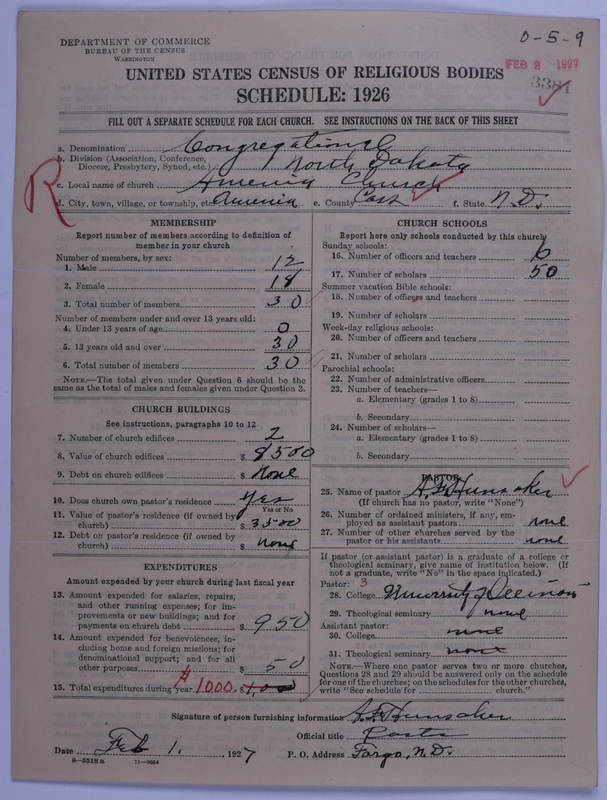 DEPARTMENT OF COMMERCE
BUREAU OF THE CENSUS
WASHINGTON
0-5-9
FEB 8 1927
3381
UNITED STATES CENSUS OF RELIGIOUS BODIES
SCHEDULE: 1926
FILL OUT A SEPARATE SCHEDULE FOR EACH CHURCH. SEE INSTRUCTIONS ON THE BACK OF THIS SHEET
R
a. Denomination Congregational
b. Division (Association, Conference, Diocese, Presbytery, Synod, etc.) North Dakota
c. Local name of church Amenia Church
d. City, town, village, or township, etc. Amenia e. County Cass f. State N.D.
MEMBERSHIP
Report number of members according to definition of
member in your church
Number of members, by sex:
1. Male 12
2. Female 18
3. Total number of members 30
Number of members under and over 13 years old:
4. Under 13 years of age 0
5. 13 years old and over 30
6. Total number of members 30
NOTE.—The total given under Question 6 should be
same as the total of males and females given under Question 3.
CHURCH BUILDINGS
See instructions, paragraphs 10 to 12
7. Number of church edifices 2
8. Value of church edifices $ 8500
9. Debt on church edifices $ None
10. Does church own pastor's residence yes
Yes or No
11. Value of pastor's residence (if owned by
church) $ 3,500
12. Debt on pastor's residence (if owned by
church) $ none
EXPENDITURES
Amount expended by your church during last fiscal year
13. Amount expended for salaries, repairs,
and other running expenses; for im-
provements or new buildings; and for
payments on church debt $ 950
14. Amount expended for benevolences, in-
cluding home and foreign missions; for
denominational support; and for all
other purposes $ 50
15. Total expenditures during year $1000. $
CHURCH SCHOOLS
Report here only schools conducted by this church
Sunday schools:
16. Number of officers and teachers 6
17. Number of scholars 50
Summer vacation Bible schools:
18. Number of officers and teachers
19. Number of scholars
Week-day religious schools:
20. Number of officers and teachers
21. Number of scholars
Parochial schools:
22. Number of administrative officers
23. Number of teachers—
a. Elementary (grades 1 to 8)
b. Secondary
24. Number of scholars—
a. Elementary (grades 1 to 8)
b. Secondary
PASTOR
25. Name of pastor A. F. Hunsaker
(If church has no pastor, write "None")
26. Number of ordained ministers, if any, em-
ployed as assistant pastors none
27. Number of other churches served by the
pastor or his assistants none
If pastor (or assistant pastor) is a graduate of a college or
theological seminary, give name of institution below. (If
not a graduate, write "No" in the space indicated.)
Pastor: 3
28. College University of Illinois
29. Theological seminary none
Assistant pastor:
30. College none
31. Theological seminary none
NOTE.—Where one pastor serves two or more churches,
Questions 28 and 29 should be answered only on the schedule
for one of the churches; on the schedules for the other churches,
write "See schedule for church."
Signature of person furnishing information A. F. Hunsaker
Official title Pastor
Date Feb 1, 1927 P. O. Address Fargo, N.D.
8—5518a 11—9064